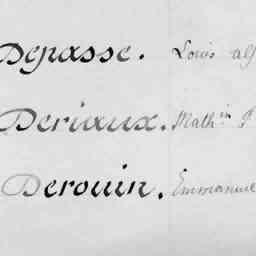 Depasse. Louis alf
Deriaux. Math.in F
Derouin. Emmanue